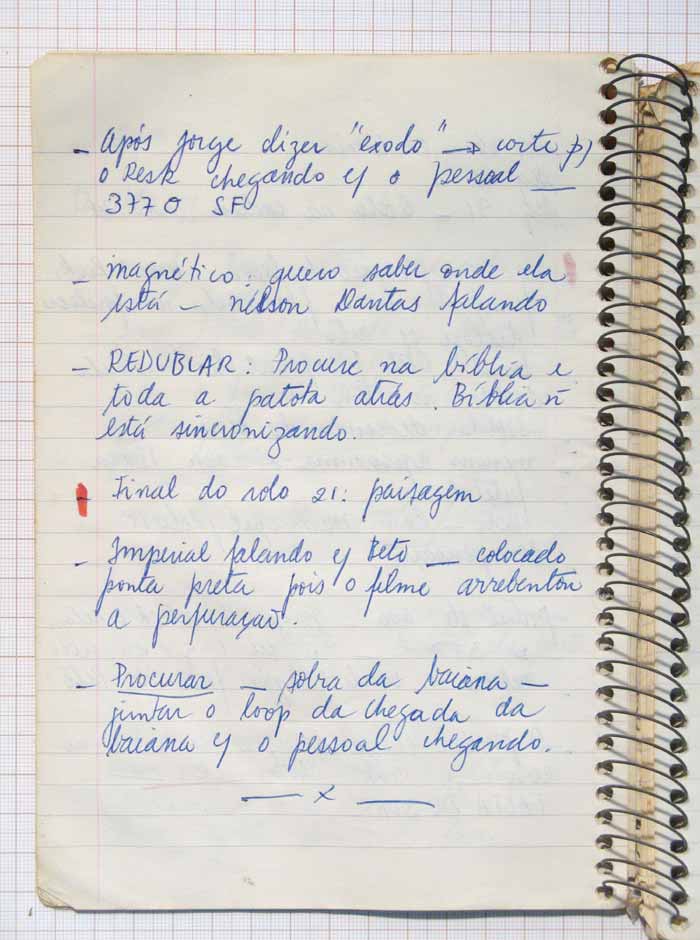 - Após Jorge dizer "êxodo" → corte p/
o Resk chegando c/ o pessoal —
3770 SF
- magnético: quero saber onde ela
está - nélson Dantas falando
- REDUBLAR: Procure na bíblia e
toda a patota atrás. Bíblia ñ
está sincronizando.
- Final do rolo 21: paisagem
- Imperial falando c/ Beto — colocado
ponta preta pois o filme arrebentou
a perfuração.
- Procurar — sobra da baiana -
juntar o loop da chegada da
baiana c/ o pessoal chegando.
— x —